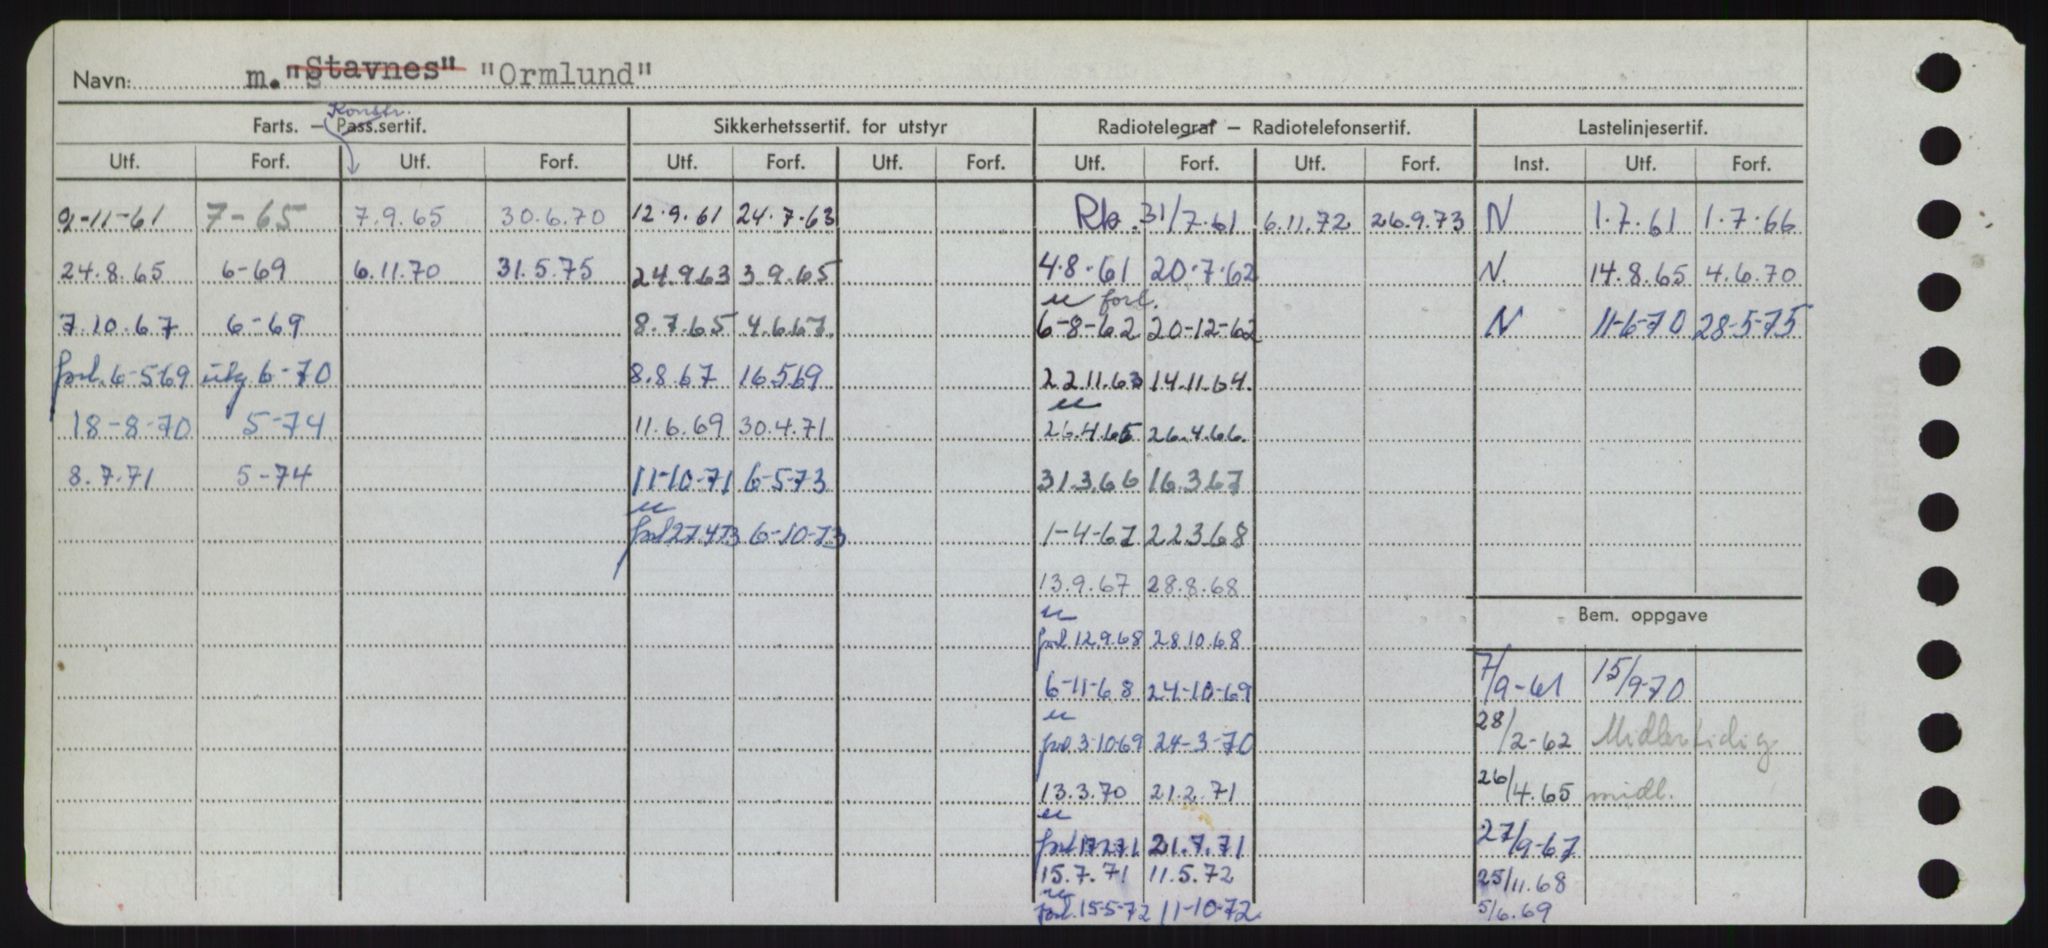 Navn: m. "Stavnes" "Ormlund"
Konstr.
Farts. – Pass.sertif. Sikkerhetssertif. for utstyr Radiotelegraf – Radiotelefonsertif. Lastelinjesertif.
Utf. Forf. Utf. Forf. Utf. Forf. Utf. Forf. Utf. Forf. Utf. Forf. Inst. Utf. Forf.
9-11-61 7-65 7.9.65 30.6.70 12.9.61 24.7.63 31/7.61 6.11.72 26.9.73 N 1.7.61 1.7.66
24.8.65 6-69 6.11.70 31.5.75 24.9.63 3.9.65 4.8.61 20.7.62 N. 14.8.65 4.6.70
forl.
7.10.67 6-69 8.7.65 4.6.67. 6-8-62 20-12-62 N 11-6-70 28-5-75
forl. 6-5-69 utg 6-70 8.8.67 16.5.69 22.11.63 14.11.64.
18-8-70 5-74 11.6.69 30.4.71 26.4.65 26.4.66.
8.7.71 5-74 11-10-71 6-5-73 31.3.66 16.3.67
forl 27.4.73 6-10-73 1-4-67 22.3.68
13.9.67 28.8.68
Bem. oppgave
forl 12.9.68 28.10.68
6-11-68 24-10-69 7/9-61 15/9-70
forl 3-10-69 24-3-70 28/2-62 Midlertidig
13.3.70 21.2.71 26/4.65 midl.
forl 17.2.71 21.7.71 27/9-67
15.7.71 11.5.72 25/11.68
forl. 15-5-72 11-10-72 5/6.69